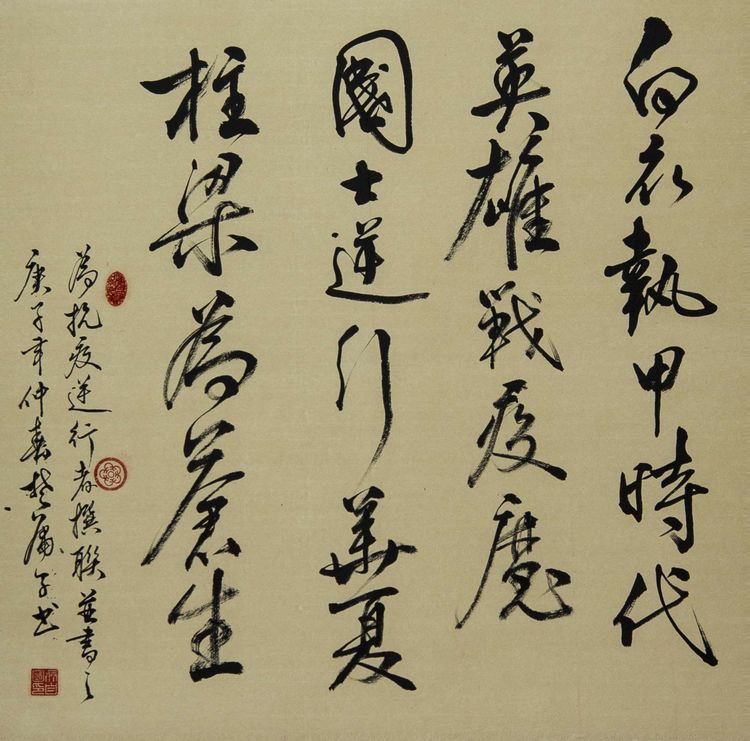 白衣執甲時代
英雄戰疫魔
國士逆行華夏
柱梁為蒼生
為抗疫逆行者撰聯並書之
庚子年仲春楚庸子书